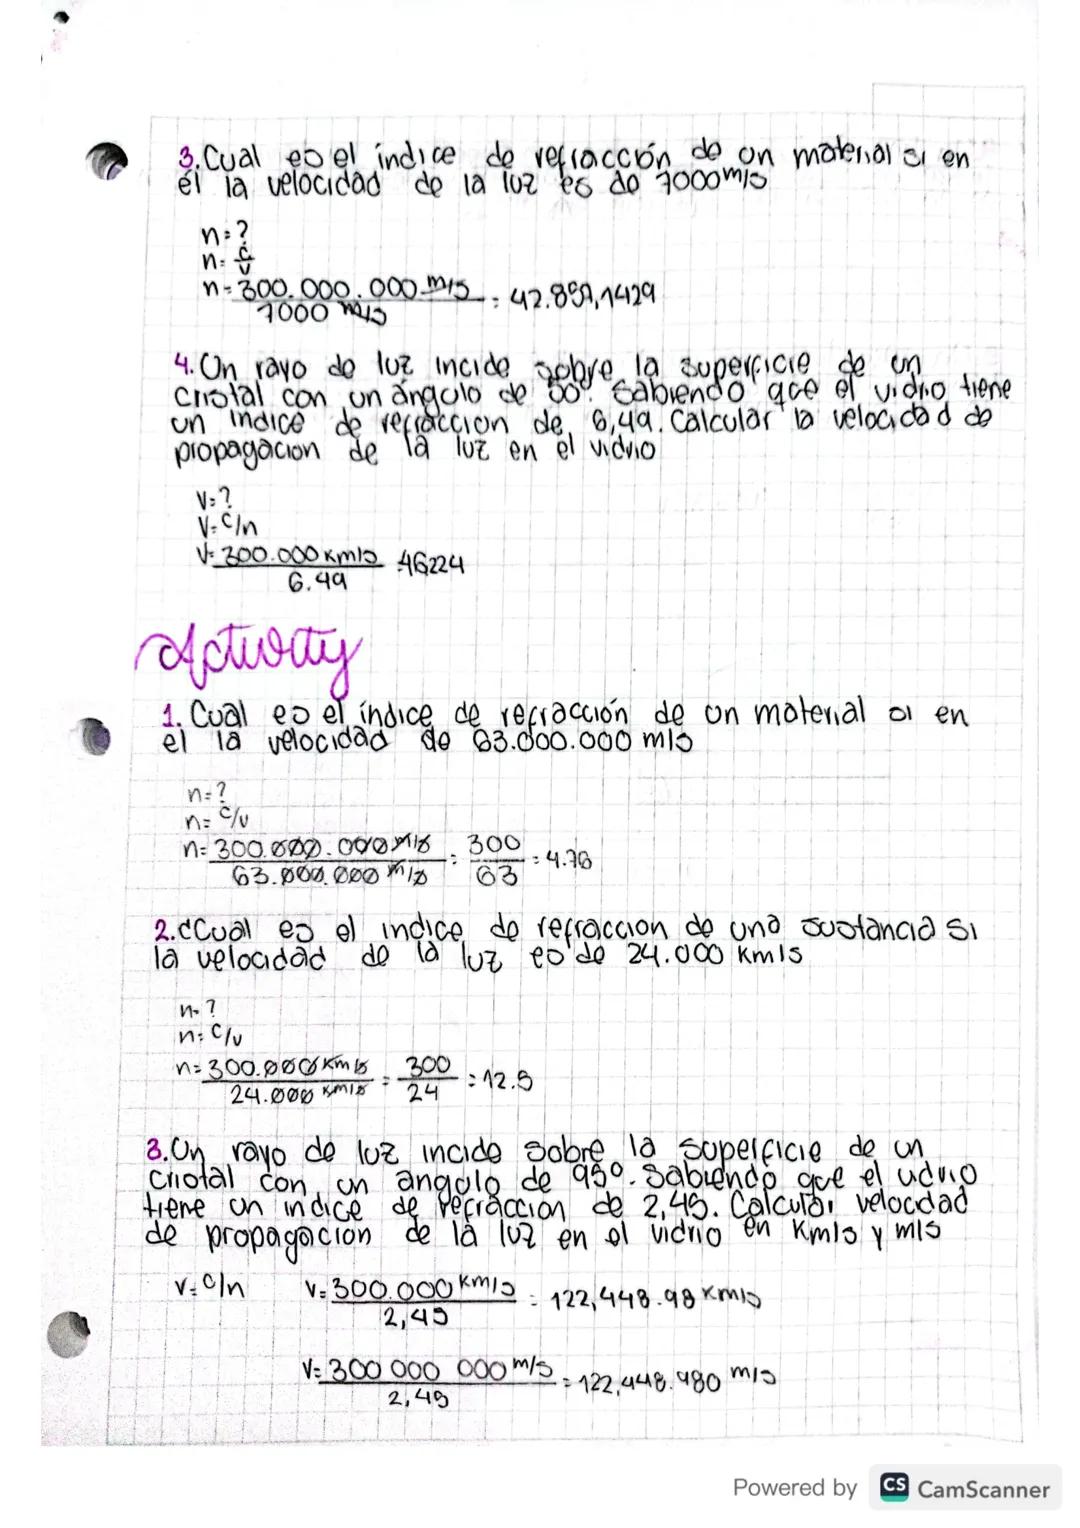 3. Cual es el índice de refracción de un material si en
él la velocidad de la luz es de 7000 m/s
n=?
n= c/v
n= 300.000.000 m/s / 7000 m/s = 42.857,1429
4. Un rayo de luz incide sobre la superficie de un
cristal con un ángulo de 50°. Sabiendo que el vidrio tiene
un indice de refraccion de 6,49. Calcular la velocidad de
propagacion de la luz en el vidrio
V=?
V= C/n
V= 300.000 km/s / 6.49 = 46224
Activity
1. Cual es el índice de refracción de un material si en
el la velocidad de 63.000.000 m/s
n=?
n= c/v
n= 300.000.000 m/s / 63.000.000 m/s = 300 / 63 = 4.76
2. ¿Cual es el indice de refraccion de una sustancia si
la velocidad de la luz es de 24.000 km/s
n=?
n= c/v
n= 300.000 km/s / 24.000 km/s = 300 / 24 = 12.5
3. Un rayo de luz incide sobre la superficie de un
cristal con un angulo de 95°. Sabiendo que el vidrio
tiene un indice de refraccion de 2,45. Calcular velocidad
de propagacion de la luz en el vidrio en Km/s y m/s
v= c/n v= 300.000 km/s / 2,45 = 122,448.98 km/s
V= 300 000 000 m/s / 2,45 = 122,448.980 m/s
Powered by CS CamScanner